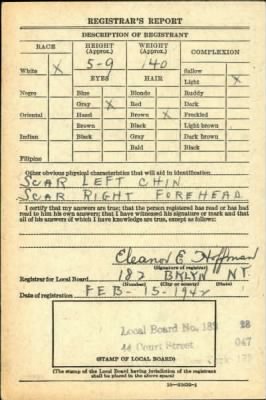 REGISTRAR'S REPORT
DESCRIPTION OF REGISTRANT
RACE HEIGHT (Approx.) WEIGHT (Approx.) COMPLEXION
White X 5-9 140 Sallow
EYES HAIR Light X
Negro Blue Blonde Ruddy
Gray X Red Dark
Oriental Hazel Brown X Freckled
Brown Black Light brown
Indian Black Gray Dark brown
Bald Black
Filipino
Other obvious physical characteristics that will aid in identification
SCAR LEFT CHIN
SCAR RIGHT FOREHEAD
I certify that my answers are true; that the person registered has read or has had
read to him his own answers; that I have witnessed his signature or mark and that
all of his answers of which I have knowledge are true, except as follows:
Eleanor E Hoffman
(Signature of registrar)
Registrar for Local Board 182 BKLYN N.Y.
(Number) (City or county) (State)
Date of registration FEB-15-1942
Local Board No. 182 28
44 Court Street 047
(STAMP OF LOCAL BOARD)
(The stamp of the Local Board having jurisdiction of the registrant
shall be placed in the above space)